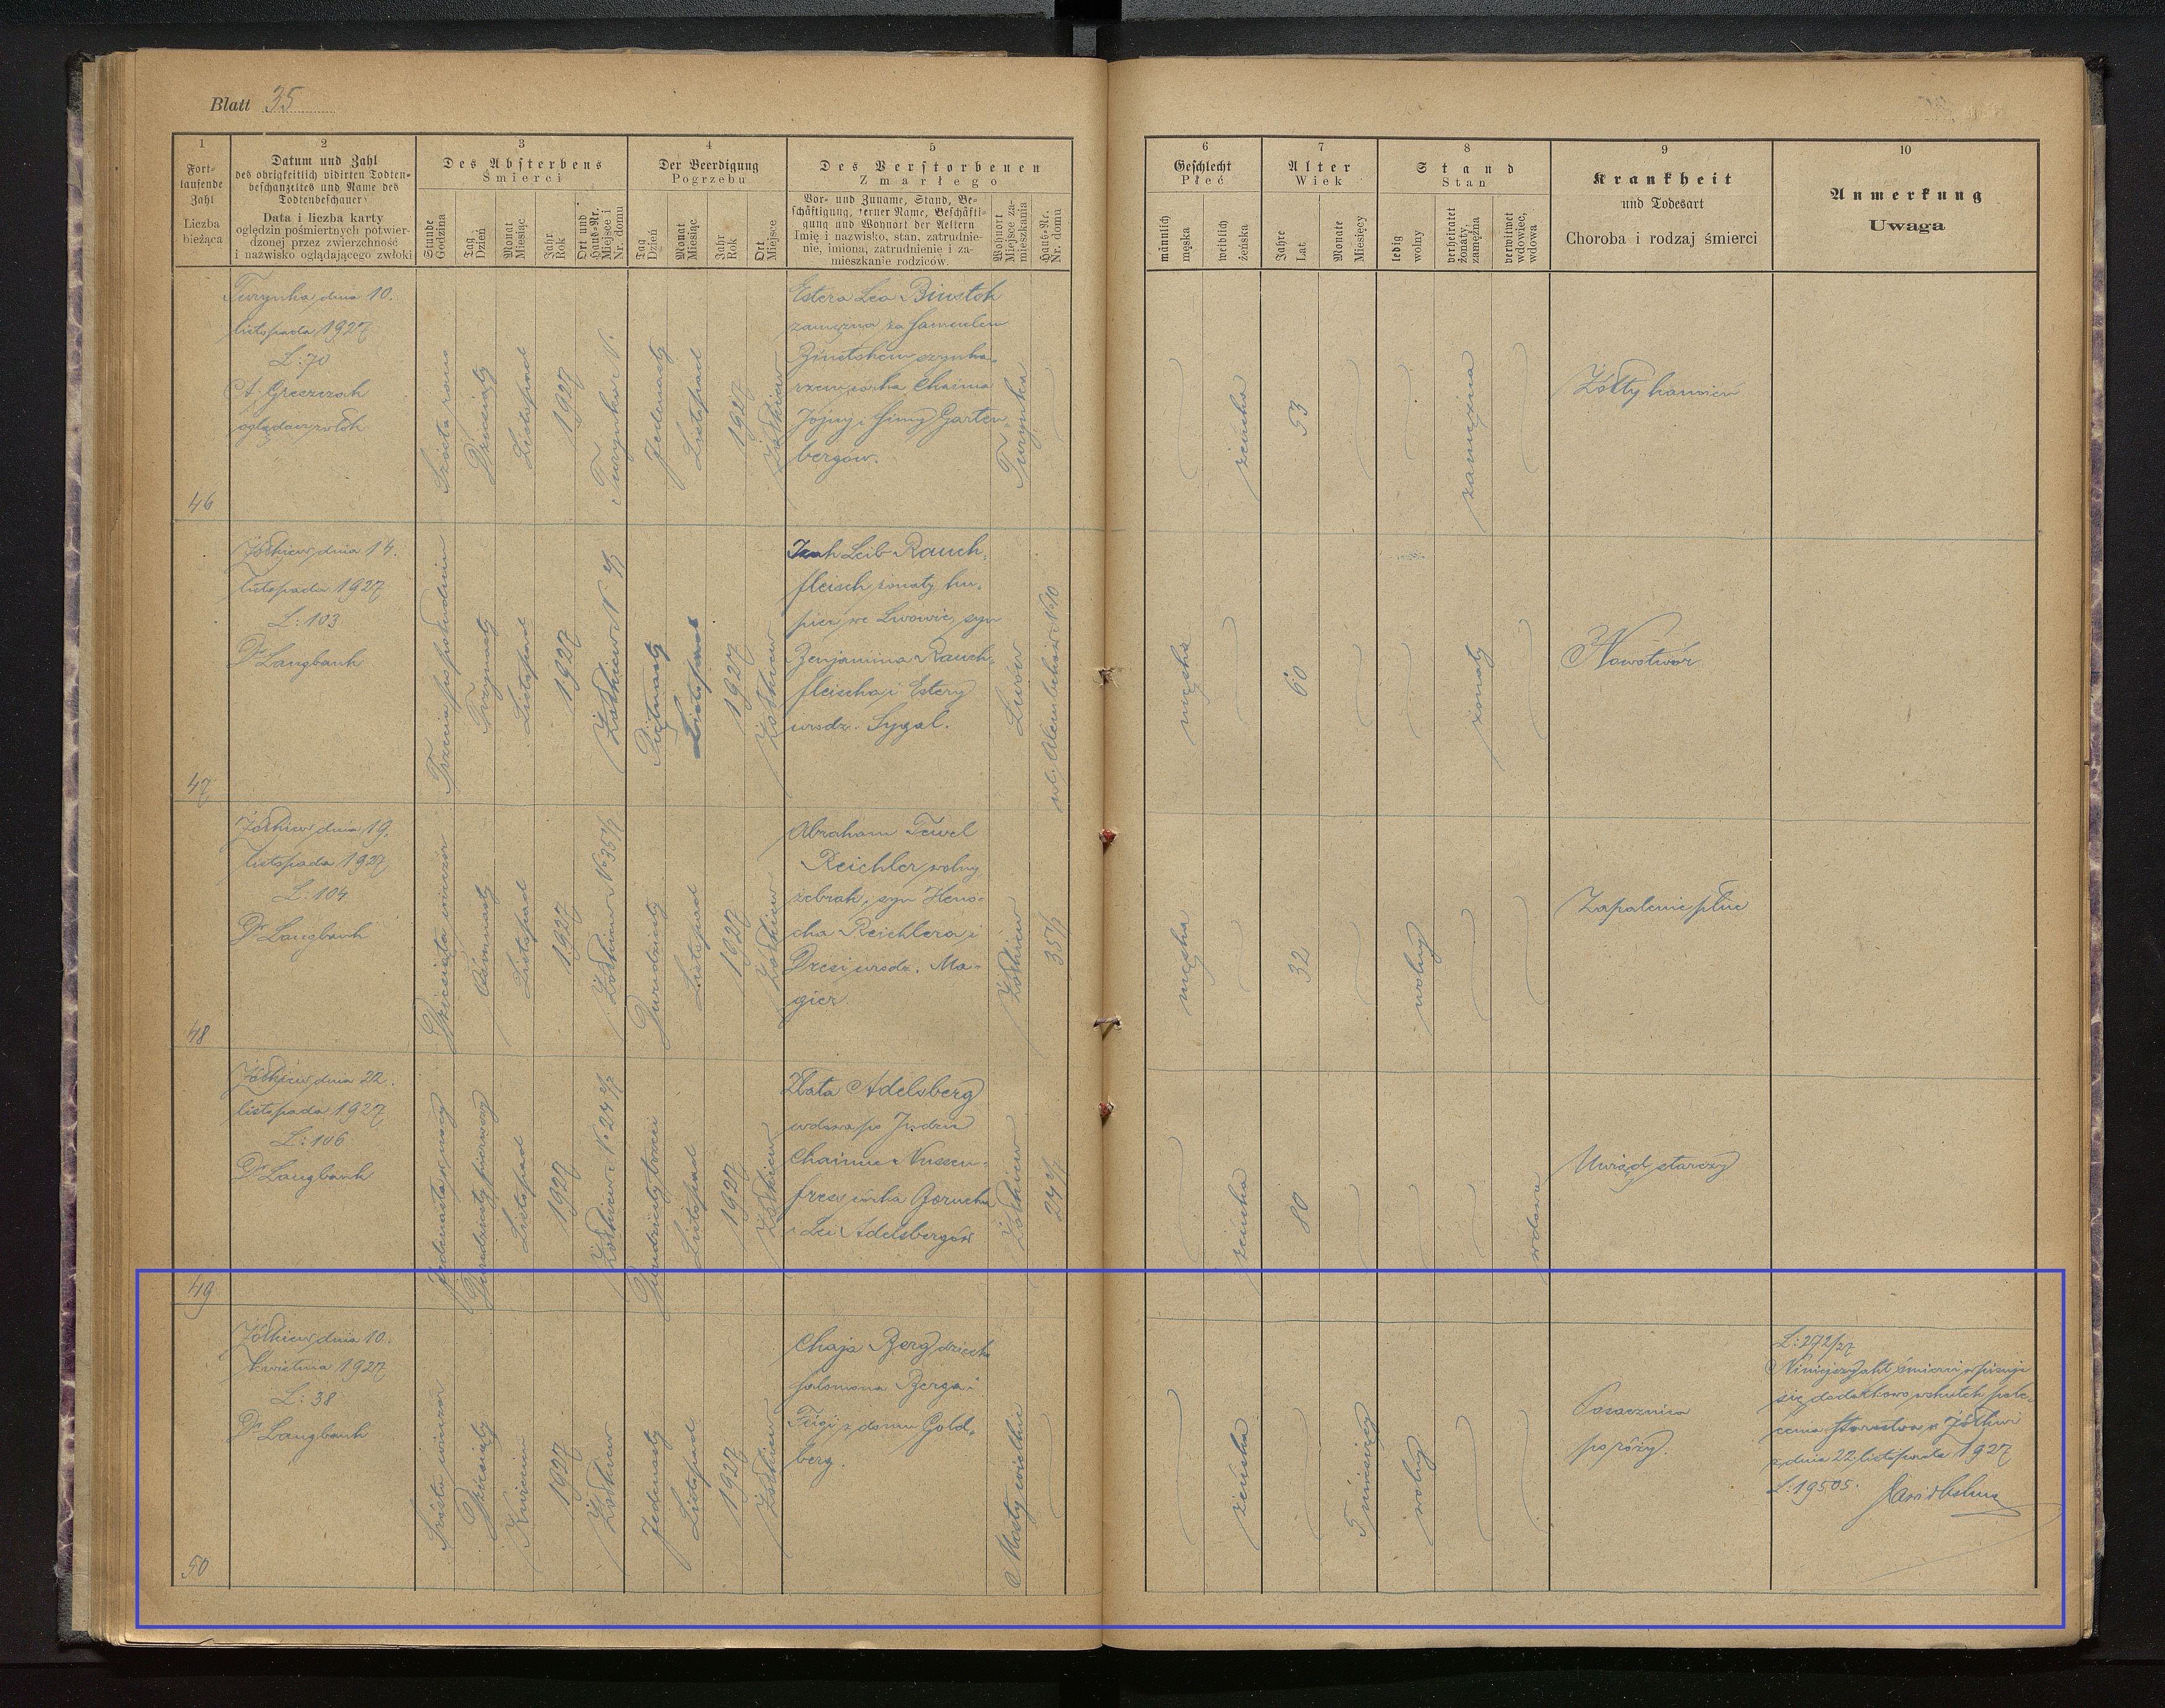 Blatt 35
1
Fort-
laufende
Zahl
Liczba
bieżąca
2
Datum und Zahl
des obrigkeitlich vidirten Todten-
beschauzettes und Name des
Todtenbeschauer
Data i liczba karty
oględzin pośmiertnych potwier-
dzonej przez zwierzchność
i nazwisko oglądającego zwłoki
3
Des Absterbens
Śmierci
Stunde
Godzina
Tag
Dzień
Monat
Miesiąc
Jahr
Rok
Ort und
Haus-Nr.
Miejsce i
Nr. domu
4
Der Beerdigung
Pogrzebu
Tag
Dzień
Monat
Miesiąc
Jahr
Rok
Ort
Miejsce
5
Des Verstorbenen
Zmarłego
Vor- und Zuname, Stand, Be-
schäftigung, ferner Name, Beschäfti-
gung und Wohnort der Aeltern
Imię i nazwisko, stan, zatrudnie-
nie, imiona, zatrudnienie i za-
mieszkanie rodziców.
Wohnort
Miejsce za-
mieszkania
Haus-Nr.
Nr. domu
6
Geschlecht
Płeć
männlich
męska
weiblich
żeńska
7
Alter
Wiek
Jahre
Lat
Monate
Miesięcy
8
Stand
Stan
ledig
wolny
verheiratet
żonaty,
zamężna
verwitwet
wdowiec,
wdowa
9
Krankheit
und Todesart
Choroba i rodzaj śmierci
10
Anmerkung
Uwaga
46
Turynka, dnia 10.
listopada 1927
L: 70
A. Greszczak
oglądacz zwłok
Szósta rano
Dziesiąty
Listopad
1927
Turynka
Jedenasty
Listopad
1927
Żółkiew
Estera Lea Binstok
zamężna za Samuelem
Binstokiem szynka-
rzem, córka Chaima
Jojny i Simy Garten-
bergów.
Turynka
żeńska
53
zamężna
Żółty kamień
47
Żółkiew, dnia 14.
listopada 1927
L: 103
Dr Langbank
Trzecia po południu
Trzynasty
Listopad
1927
Żółkiew
Piętnasty
Listopad
1927
Żółkiew
Leib Rauch-
fleisch żonaty ku-
piec we Lwowie, syn
Benjamina Rauch-
fleischa i Estery
urodz. Sygal.
Lwów
męska
60
żonaty
Nowotwór
48
Żółkiew, dnia 19.
listopada 1927
L: 104
Dr Langbank
Dziesiąta wieczór
Ósmnasty
Listopad
1927
Żółkiew
Dwudziesty
Listopad
1927
Żółkiew
Abraham Tewel
Reichler, wolny,
żebrak, syn Heno-
cha Reichlera i
Dresi urodz. Ma-
gier.
Żółkiew
męska
32
wolny
Zapalenie płuc
49
Żółkiew, dnia 22.
listopada 1927
L: 106
Dr Langbank
Jedenasta w nocy
Dwudziesty pierwszy
Listopad
1927
Żółkiew
Dwudziesty trzeci
Listopad
1927
Żółkiew
Złata Adelsberg
wdowa po Judzie
Chaimie Nussen-
córka Borucha
i Lei Adelsbergów
Żółkiew
żeńska
80
wdowa
Uwiąd starczy
50
Żółkiew, dnia 10.
kwietnia 1927
L: 38
Dr Langbank
Szósta wieczór
Dziesiąty
Kwiecień
1927
Żółkiew
Jedenasty
Listopad
1927
Żółkiew
Chaja Berg dziecko
Salomona Berga i
Feigi z domu Gold-
berg.
Mosty wielkie
żeńska
5 miesięcy
wolny
Posocznica
po róży.
L: 272/27
Niniejszy akt śmierci wpisuje
się dodatkowo wskutek pole-
cenia Starostwa w Żółkwi
z dnia 22 listopada 1927
L: 19505.